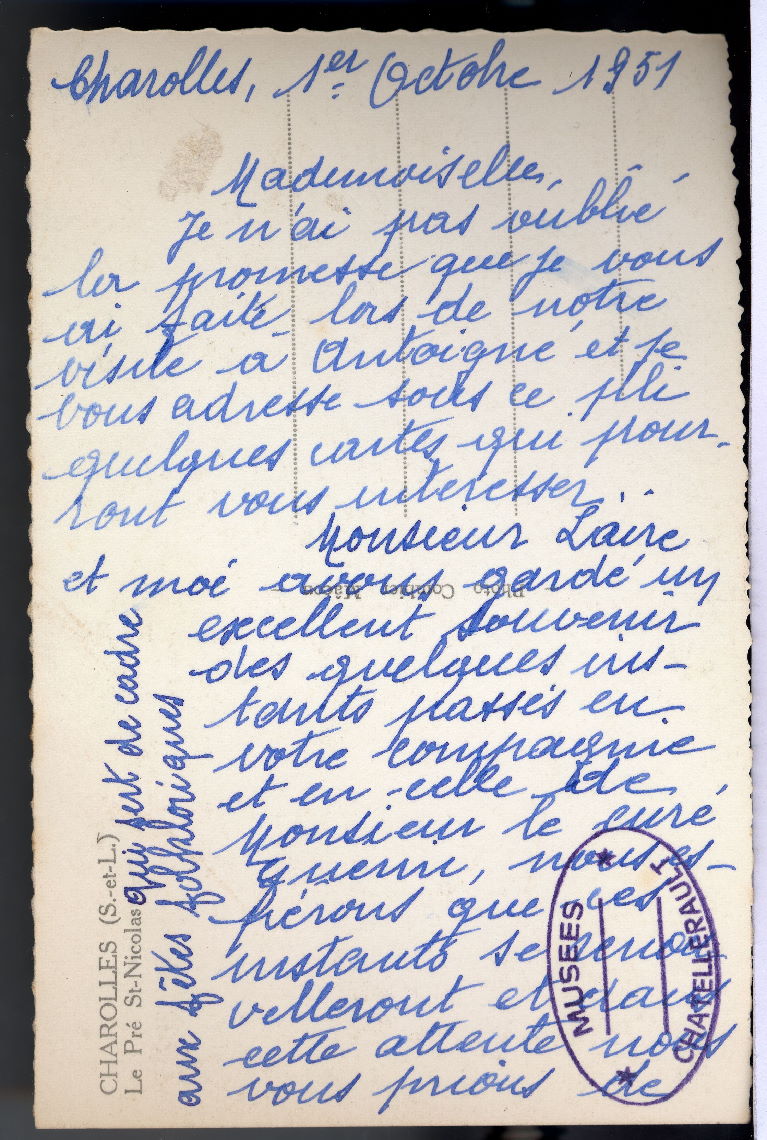 Charolles, 1er Octobre 1951
Mademoiselle,
Je n'ai pas oublié
la promesse que je vous
ai faite lors de notre
visite à Antoigné et je
vous adresse sous ce pli
quelques cartes qui pour-
ront vous intéresser.
Monsieur Laire
et moi avons gardé un
excellent souvenir
des quelques ins-
tants passés en
votre compagnie
et en celle de
Monsieur le curé
Guerin, nous es-
pérons que ces
instants se renou
velleront et dans
cette attente nous
vous prions de
Photo Combier Mâcon
CHAROLLES (S.-et-L.)
Le Pré St-Nicolas qui sert de cadre
aux fêtes folkloriques
MUSEES
CHATELLERAULT